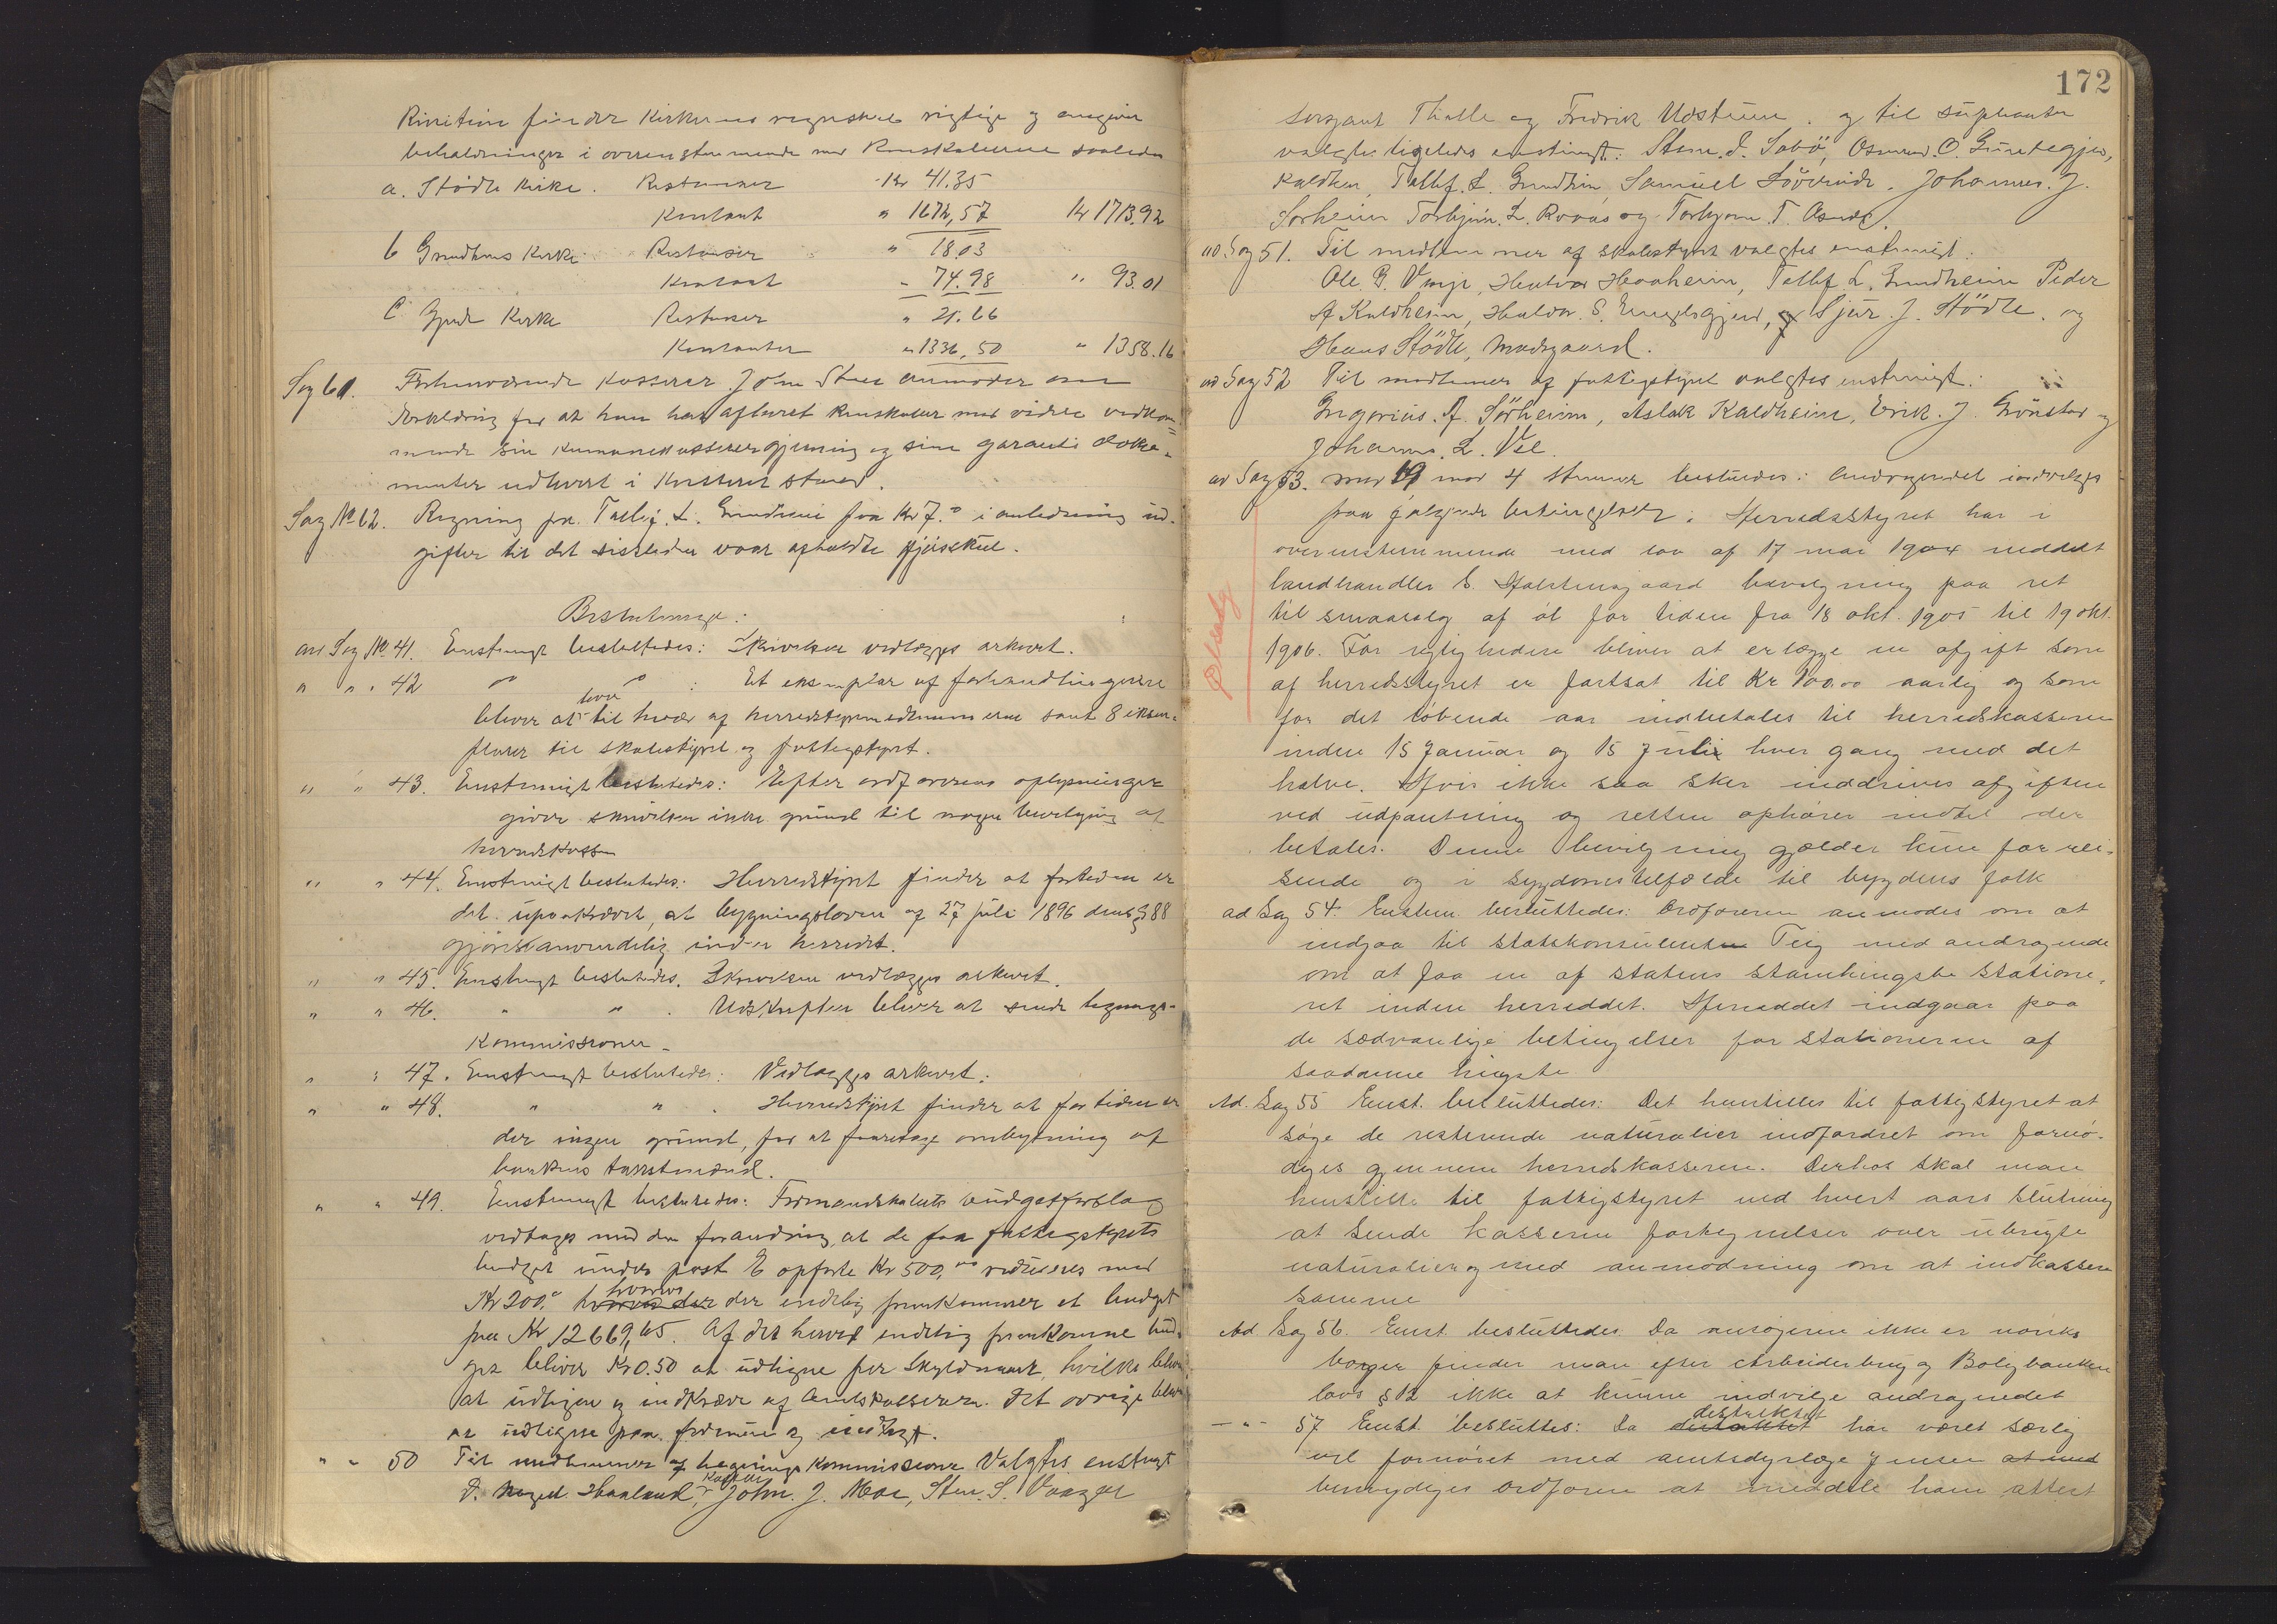 Kirketilsyn finder Kirkernes regnskab rigtige og angiver
beholdninger i overensstemmende med Regnskaberne saaledes
a. Stödle Kirke. Restancer Kr 41.35
Kontant " 1672,57 Kr 1713.92
b Grindheims Kirke Restancer " 18.03
Kontant " 74.98 " 93.01
C. Gjerde Kirke Restancer " 21.66
Kontanter " 1336,50 " 1358.16
Sag 61. Forhenværende Kasserer John Steen anmoder om
Erklæring for at han har afleveret Regnskaber med videre vedkom=
mende sin Kommunekasserergjerning og sine garanti doku-
menter udleveret i kvitteret stand.
Sag No 62. Regning fra Tallef. L. Grindheim paa Kr 7.00 i anledning ud-
gifter til det sidstleden vaar afholdte fjösskue.
Beslutninger:
ad Sag No 41. Enstemmigt besluttedes: Skrivelsen vedlægges arkivet.
" " " 42 " " : Et eksemplar af forhandlingerne
bliver at til hver af herredstyremedlemmerne samt 8 eksem-
plarer til skolestyret og fattigstyret.
" " 43. Enstemmigt besluttedes: Efter ordförerens oplysninger
giver skrivelsen ikke grund til nogen bevilgning af
herredskassen
" " 44. Enstemmigt besluttedes: Herredstyret finder at for tiden er
det upaakrævet, at bygningsloven af 27 juli 1896 dens § 88
gjöres anvendelig inden herredet.
" " 45. Enstemmigt besluttedes. Skrivelsen vedlægges arkivet.
" " 46. " " . Udskriften bliver at sende lignings-
Kommissionen -
" " 47. Enstemmigt besluttedes: Vedlægges arkivet.
" " 48. " " . Herredstyret finder at for tiden er
der ingen grund, for at foretage ombytning af
bankens takstmænd.
" " 49. Enstemmigt besluttedes: Formandskabets budgetforslag
vedtages med den forandring, at de paa fattigstyrets
budget under post E opförte Kr 500,00 reduceres med
Kr 200.00 hvorved der der endelig fremkommer et budget
paa Kr 12669,65. Af det herved endelig fremkomne bud-
get bliver Kr 0.50 at udligne per Skyldmark, hvilke bliver
at udligne og indkræve af Amtskassereren. Det övrige bliver
at udligne paa formue og indtægt.
" " 50 Til medlemmer af lignings kommissionen Valgtes enstemmigt
Haaland, John. J. Moe, Sten. S. Vaage
172
Sersjant Thalle og Fredrik Udstuen. og til suplianter
valgtes ligeledes enstemigt: Sten. J. Sæbö, Osmund. O.
Kaldheim, Tallef. L. Grindheim Samuel. Johannes. J.
Sörheim Torbjørn. L. Rovaas og Torbjørn. T. Osnes.
ad Sag 51. Til medlemmer af skolestyret valgtes enstemigt:
Ole. G. Vinje, Halvor Haaheim, Tallef L. Grindheim Peder
A Kaldheim, Haldor. S. Engelsgjerd, Sjur. J. Stödle. og
Hans Stödle, Madsgaard.
ad Sag 52 Til medlemmer af fattigstyret valgtes enstemigt:
Gregorius. A. Sörheim, Aslak Kaldheim, Erik. J. Grönstad og
Johannes. L. Vee
ad Sag 53. med 19 mod 4 stemmer besluttedes: Andragendet indvilges
paa følgende betingelser: Herredsstyret har i
overensstemmende med lov af 17 mai 1904 meddelt
landhandler S. Halstensgaard bevilgning paa ret
til smaasalg af øl for tiden fra 18 okt. 1905 til 19 okt.
1906. For rettigheden bliver at erlægge en afgift som
af herredsstyret er fastsat til Kr 100.00 aarlig og som
for det løbende aar indbetales til herredskasseren
inden 15 Januar og 15 Juli hver gang med det
halve. Hvis ikke saa sker inddrives afgiften
ved udpantning og retten ophører indtil der
betales. Denne bevilgning gjælder kun for rei-
sende og i sygdomstilfælde til bygdens folk
ølsalg
ad Sag 54. Enstem. besluttedes: Ordføreren anmodes om at
indgaa til statskonsulenten Teig med andragende
om at faa en af statens stamhingste statione-
ret inden herreddet. Herreddet indgaar paa
de sædvanlige betingelser for stationeren af
saadanne hingste
Ad. Sag 55 Enst. besluttedes: Det henstilles til fattigstyret at
søge de resterende naturalier indfordret om fornø-
diges gjennem herredskasseren. Derhos skal man
henstille til fattigstyret ved hvert aars slutning
at sende kasseren fortegnelser over ubrugte
naturalier og med anmodning om at indkassere
samme
Ad Sag 56. Enst. besluttedes. Da ansøgeren ikke er norsk
borger finder man efter Arbeiderbrug og Boligbankens
lovs § 12 ikke at kunne indvilge andragendet
-"- 57 Enst. besluttes: Da distriktet har været særlig
vel fornøiet med amtsdyrlæge Jensen at med
bemyndiges ordføren at meddele ham attest